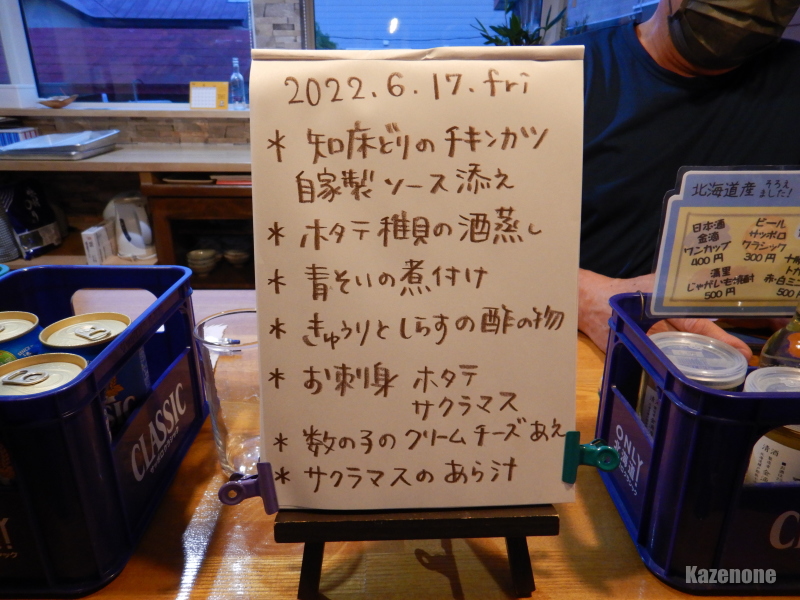 2022.6.17.fri
* 知床どりのチキンカツ
自家製ソース添え
* ホタテ稚貝の酒蒸し
* 青そいの煮付け
* きゅうりとしらすの酢の物
* お刺身 ホタテ
サクラマス
* 数の子のクリームチーズあえ
* サクラマスのあら汁
北海道産 そろえました!
日本酒
金滴
ワンカップ
400円
ビール
サッポロ
クラシック
300円
じゃがいも焼酎
500円
赤・白ミニ
500
CLASSIC
ONLY
北海道!
清酒
Kazenone